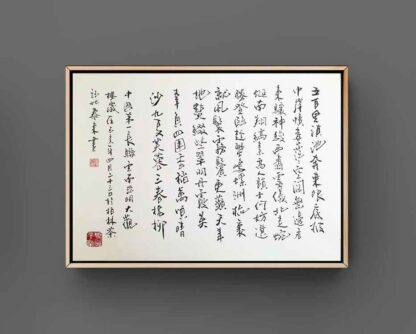 五百里滇池奔來眼底披
巾岸幘喜茫茫空闊無邊看
東驤神駿西翥靈儀北走蜿
蜒南翔縞素高人韻士何妨選
勝登臨趁蟹嶼螺洲梳裹
就風鬟霧鬢更蘋天葦
地點綴些翠羽丹霞莫
辜負四圍香稻萬頃晴
沙九夏芙蓉三春楊柳
中國第一長聯雲南昆明大觀
樓歲在己亥年四月二十三日於
書